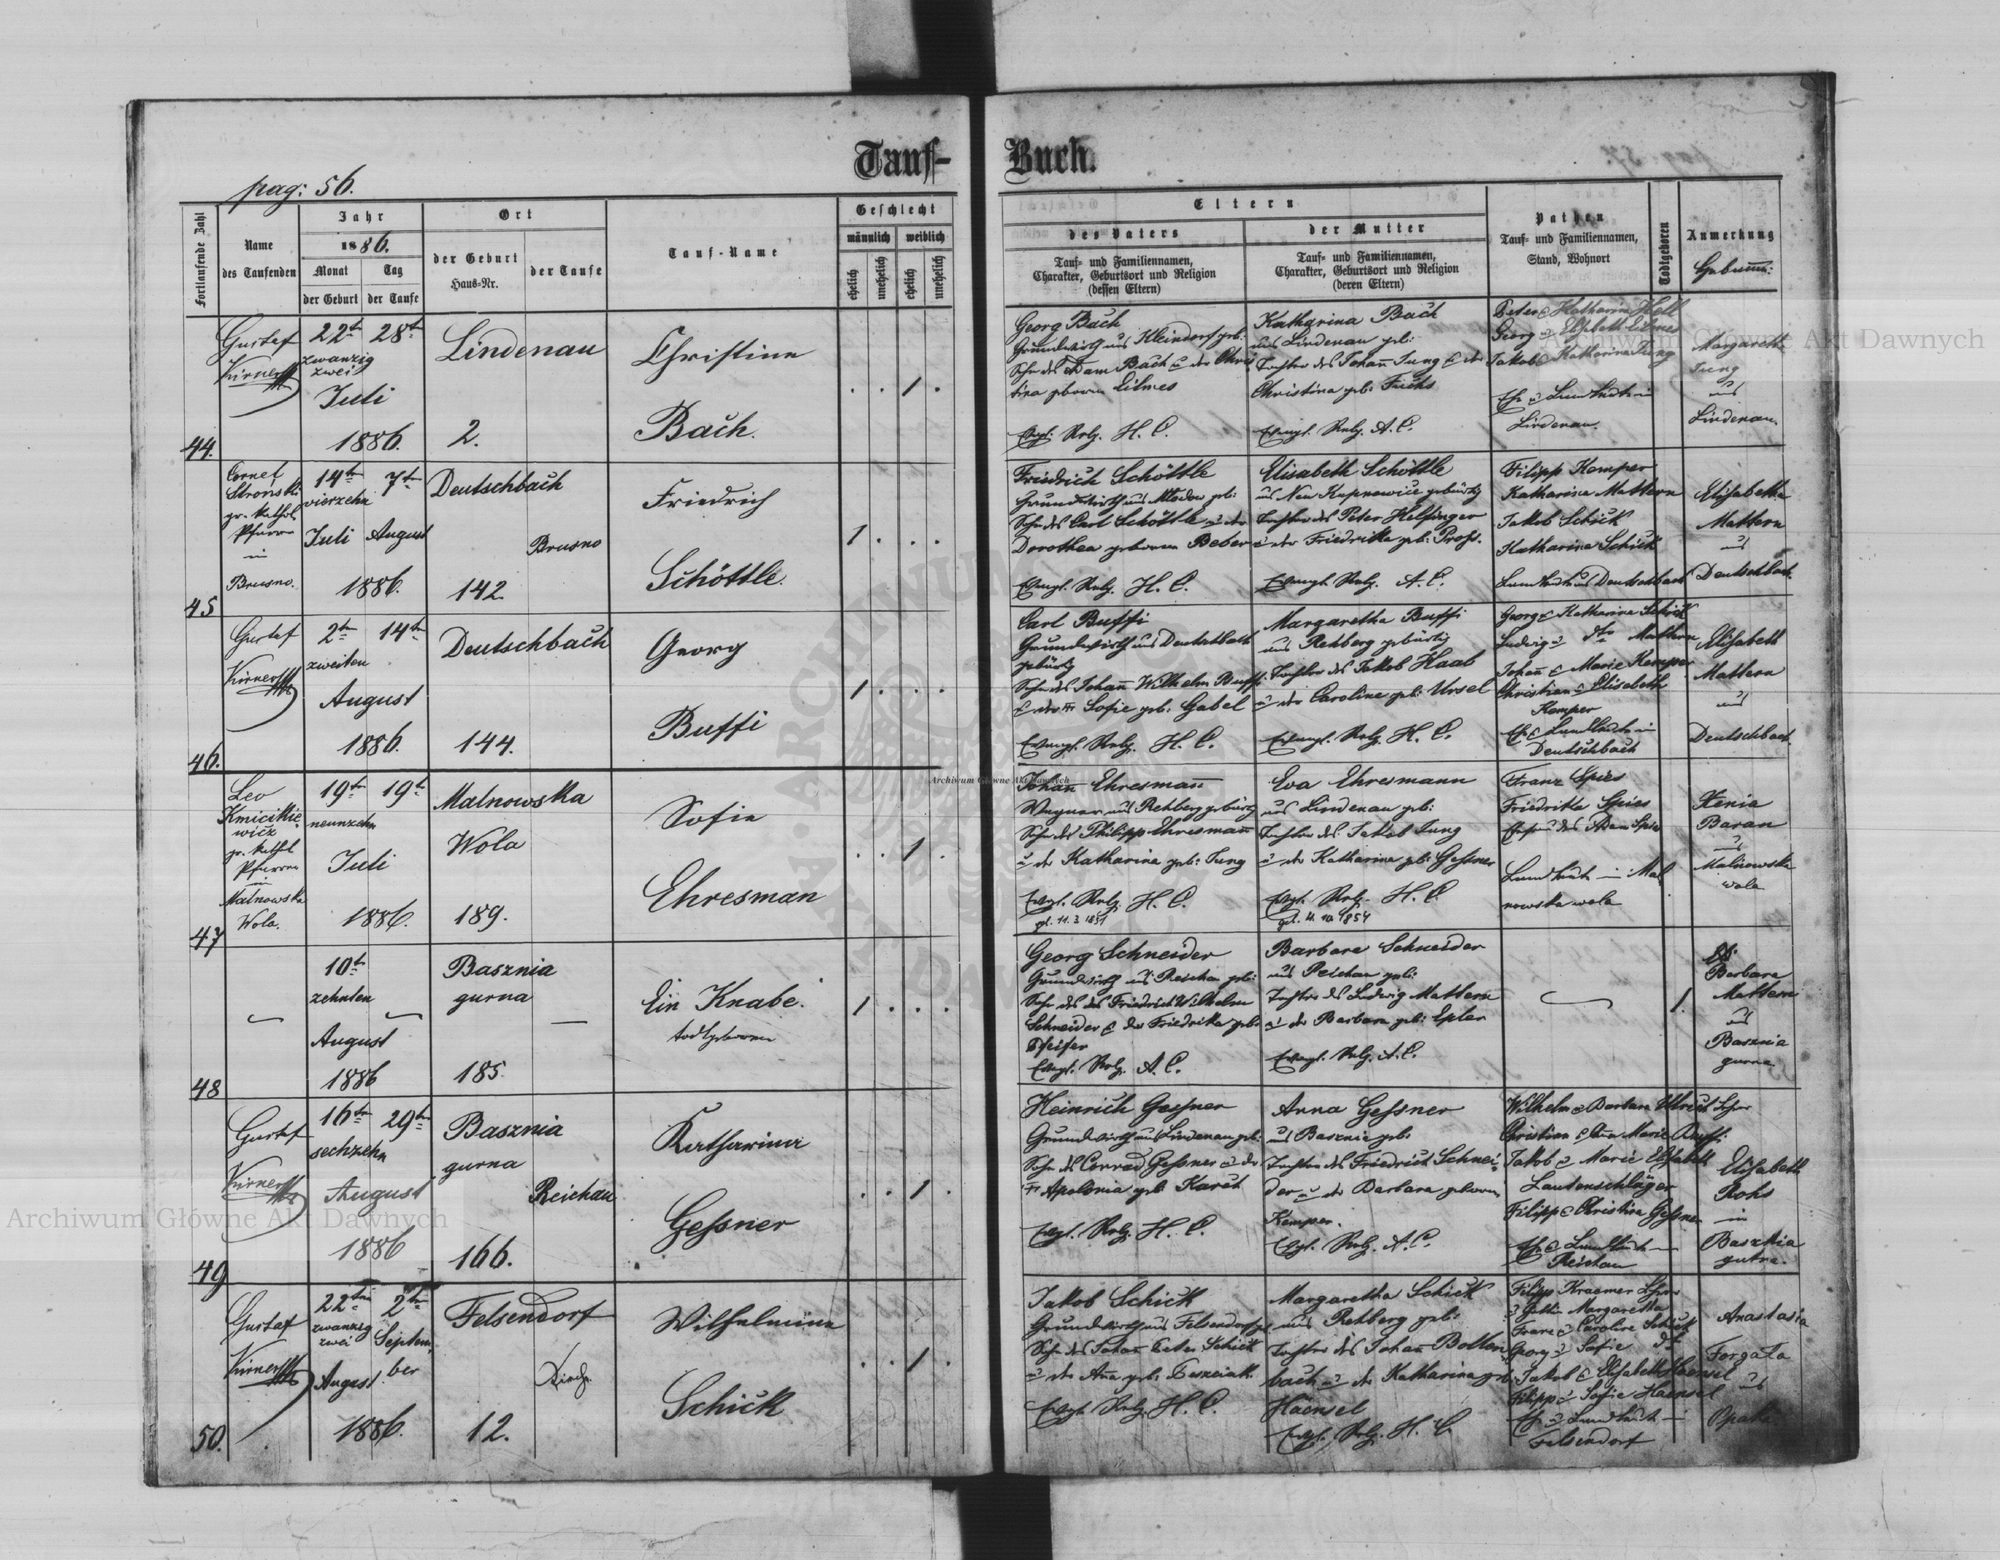 pag: 56.
Tauf-
Buch.
Fortlaufende Zahl
Name
des Taufenden
Jahr
1886.
Monat
Tag
der Geburt
der Taufe
Ort
der Geburt
Haus-Nr.
der Taufe
Tauf-Name
Geschlecht
männlich
weiblich
ehelich
unehelich
ehelich
unehelich
Eltern
des Vaters
Tauf- und Familiennamen,
Charakter, Geburtsort und Religion
(dessen Eltern)
der Mutter
Tauf- und Familiennamen,
Charakter, Geburtsort und Religion
(deren Eltern)
Pathen
Tauf- und Familiennamen,
Stand, Wohnort
Todtgeboren
Anmerkung
44.
Gustaf
22t
28t
zwanzig
zwei
Juli
1886.
Lindenau
2.
Christine
Bach.
1
Georg Bach
Grundwirth aus Kleindorf geb:
Sohn des Adam Bach u der Chris
tina geboren Lilmes
Evgl. Relg. H. C.
Katharina Bach
aus Lindenau geb:
Tochter des Johann Jung & der
Christina geb: Fuchs
Evangl. Relg. A. C.
Peter & Katharina Hell
Georg & Elisbeth Lilmes
Jakob & Katharina Jung
Lindenau.
Margareth
Jung
aus
Lindenau.
45
Cornel
Stronski
gr. kathol
Pfarrer
in
Brusno.
14t
7t
vierzehn
Juli
August
1886.
Deutschbach
Brusno
142.
Friedrich
Schöttle.
1
Friedrich Schöttle
Sohn des Carl Schöttle u der
Dorothea geboren Beber
Evangl. Relg. H. C.
Elisabeth Schöttle
aus Neu Kupnowice gebürtig
Tochter des Peter Helfinger
u der Friedrika geb:
Evangl. Relg. A. C.
Filipp Kemper
Katharina Mattern
Jakob Schick
Katharina Schick
Elisabetha
Mattern
aus
Deutschbach.
46.
Gustaf
2t
14t
zweiten
August
1886.
Deutschbach
144.
Georg
Buffi
1
Carl Buffi
Grundwirth aus Deutschbach
gebürtig
Sohn des Johann Wilhelm Buffi
& der Sofie geb. Gabel
Evangl. Relg. H. C.
Margaretha Buffi
aus Rehberg gebürtig
Tochter des Jakob Haab
u der Caroline geb. Ursel
Evangl. Relg. H. C.
Georg & Katharina Schick
Ludwig & dto Mattern
Johann & Marie Kemper
Christian & Elisabeth
Kemper
Deutschbach
Elisabeth
Mattern
aus
Deutschbach.
47
Leo
Kmicikie
wicz
gr. kathol
Pfarrer
in
Malnowska
Wola.
19t
19t
neunzehn
Juli
1886.
Malnowska
Wola
189.
Sofie
Ehresman
1
Johann Ehresmann
Wagner aus Rehberg gebürtig
Sohn des Philipp Ehresmann
u der Katharina geb: Jung
Evgl. Relg. H. C.
Eva Ehresmann
aus Lindenau geb:
Tochter des Jakob Jung
u der Katharina geb: Gessner
Evgl. Relg. H. C.
Franz Spies
Friedrika Spies
nowska wola
Xenia
Baran
aus
Malnowska
wola
48
10t
zehnten
August
1886
Basznia
gurna
185.
Ein Knabe.
todtgeboren
1
Georg Schneider
Grundwirth aus Reichau geb:
Sohn des Friedrich Wilhelm
Schneider & der Friedrika geb.
Pfeifer
Evngl. Relg. A. C.
Barbara Schneider
aus Reichau geb:
Tochter des Ludwig Mattern
u der Barbara geb: Epler
Evangl. Relg. A. C.
1.
Barbara
Mattern
aus
Basznia
gurna
49
Gustaf
16t
29t
sechzehn
August
1886
Basznia
gurna
Reichau
166.
Katharina
Gessner
1
Heinrich Gessner
Grundwirth aus Lindenau geb:
Sohn des Conrad Gessner u der
Apolonia geb: Karch
Evgl. Relg. H. C.
Anna Gessner
aus Basznia geb.
Tochter des Friedrich Schnei
der u der Barbara geboren
Kemper.
Evgl. Relg. A. C.
Jakob & Marie Elisabeth
Lautenschläger
Filipp & Christina Gessner
Reichau
Elisabeth
Rohs
in
Basznia
gurna.
50.
Gustaf
22t
2t
zwanzig
zwei
Septem
ber
August
1886.
Felsendorf
12.
Wilhelmine
Schick
1
Jakob Schick
Grundwirth aus Felsendorf geb
Sohn des Johann Peter Schick
Evgl. Relg. H. C.
Margaretha Schick
aus Rehberg geb:
Tochter des Johann Bollen
bach u der Katharina geb.
Haensel
Evgl. Relg. H. C.
Filipp Kraemer
Margaretha
Georg & Sofie dto
Jakob & Elisabeth Haensel
Filipp & Sofie Haensel
Felsendorf
Anastasia
Forgata
aus
Opaka
Archiwum Główne Akt Dawnych
Archiwum Główne Akt Dawnych
Archiwum Główne Akt Dawnych